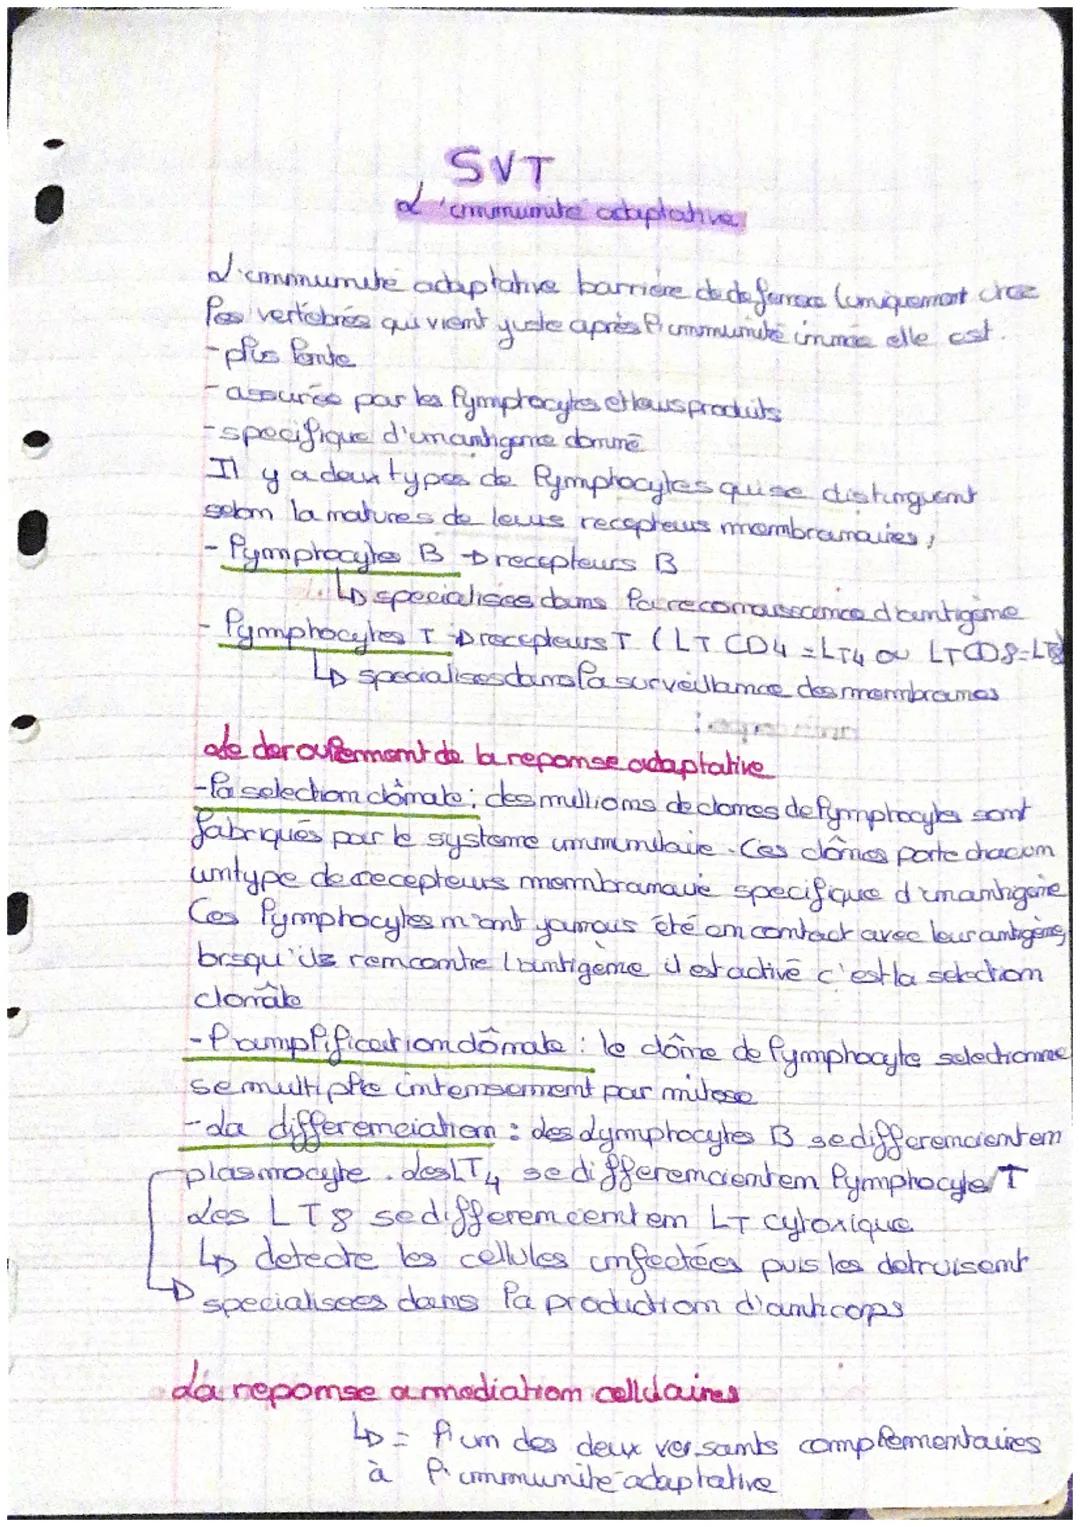 SVT
L'immunité adaptative
L'immunité adaptative barrière de defense (uniquement chez
les vertébrés qui vient juste après l'immunité innée elle est.
- plus lente
- assurée par les lymphocytes et leurs produits
- specifique d'un antigene donné
Il y a deux types de lymphocytes qui se distinguent
selon la natures de leurs recepteurs membranaires,
- lymphocytes B → recepteurs B
↳ specialisees dans la reconnaissance d'antigène
- lymphocytes T → recepteurs T (LT CD4 = LT4 ou LTCD8 = LT8)
↳ specialises dans la surveillance des membranes
Le deroullement de la reponse adaptative
- la selection clônale : des millions de clones de lymphocytes sont
fabriqués par le systeme immunitaire. Ces clônes porte chacun
un type de recepteurs membranaire specifique d'un antigène
Ces lymphocytes n'ont jamais été en contact avec leur antigène,
lorsqu'ils rencontre l'antigène il est activé c'est la selection
clonâle
- l'amplification clônale : le clône de lymphocyte selectionnee
se multiplie intensement par mitose
- La differenciation : des Lymphocytes B se differencient en
plasmocyte. des LT4 se differencient en lymphocyte T
Les LT8 se differencient en LT cytoxique
↳ detecte les cellules infectées puis les detruisent
↳ specialisees dans la production d'anticorps
La reponse a mediation cellulaires
↳ = l'un des deux versants complémentaires
à l'immunité adaptative